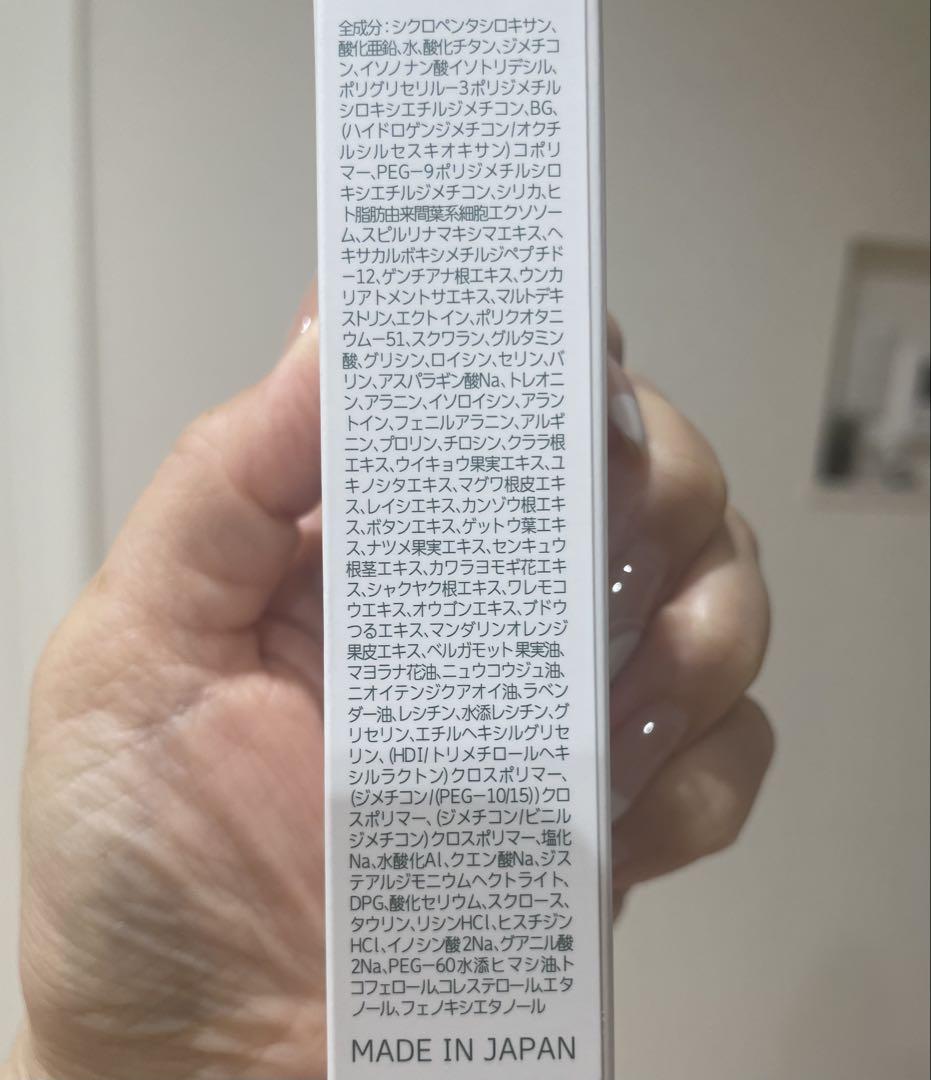 全成分：シクロペンタシロキサン、
酸化亜鉛、水、酸化チタン、ジメチコ
ン、イソノナン酸イソトリデシル、
ポリグリセリルー3ポリジメチル
シロキシエチルジメチコン、BG、
(ハイドロゲンジメチコン/オクチ
ルシルセスキオキサン)コポリ
マー、PEGー9ポリジメチルシロ
キシエチルジメチコン、シリカ、ヒ
ト脂肪由来間葉系細胞エクソソー
ム、スピルリナマキシマエキス、ヘ
キサカルボキシメチルジペプチド
ー12、ゲンチアナ根エキス、ウンカ
リアトメントサエキス、マルトデキ
ストリン、エクトイン、ポリクオタニ
ウムー51、スクワラン、グルタミン
酸、グリシン、ロイシン、セリン、バ
リン、アスパラギン酸Na、トレオニ
ン、アラニン、イソロイシン、アラン
トイン、フェニルアラニン、アルギ
ニン、プロリン、チロシン、クララ根
エキス、ウイキョウ果実エキス、ユ
キノシタエキス、マグワ根皮エキ
ス、レイシエキス、カンゾウ根エキ
ス、ボタンエキス、ゲットウ葉エキ
ス、ナツメ果実エキス、センキュウ
根茎エキス、カワラヨモギ花エキ
ス、シャクヤク根エキス、ワレモコ
ウエキス、オウゴンエキス、ブドウ
つるエキス、マンダリンオレンジ
果皮エキス、ベルガモット果実油、
マヨラナ花油、ニュウコウジュ油、
ニオイテンジクアオイ油、ラベン
ダー油、レシチン、水添レシチン、グ
リセリン、エチルヘキシルグリセ
リン、(HDI/トリメチロールヘキ
シルラクトン)クロスポリマー、
(ジメチコン/(PEGー10/15))クロ
スポリマー、(ジメチコン/ビニル
ジメチコン)クロスポリマー、塩化
Na、水酸化Al、クエン酸Na、ジス
テアルジモニウムヘクトライト、
DPG、酸化セリウム、スクロース、
タウリン、リシンHCl、ヒスチジン
HCl、イノシン酸2Na、グアニル酸
2Na、PEGー60水添ヒマシ油、ト
コフェロール、コレステロール、エタ
ノール、フェノキシエタノール
MADE IN JAPAN